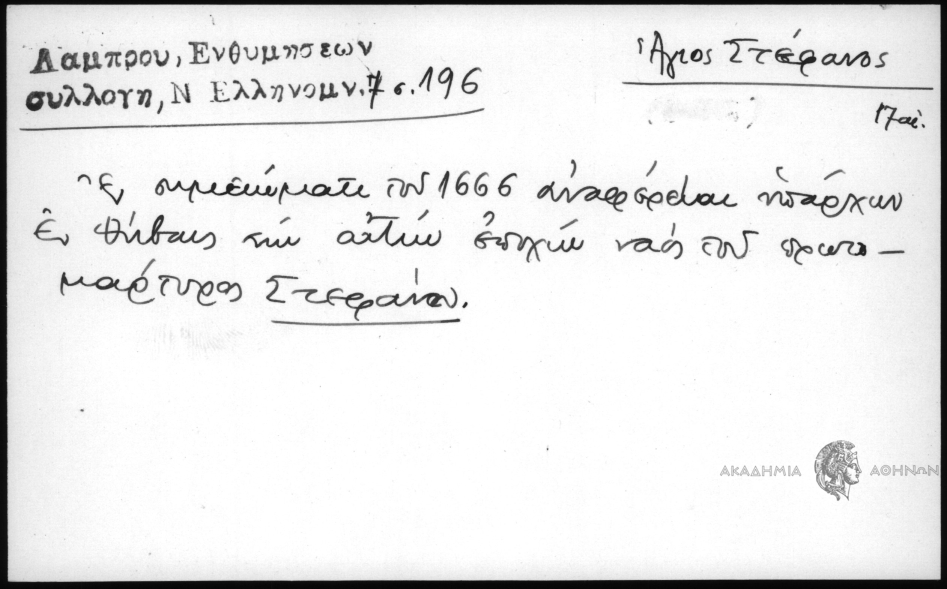 Λαμπρου, Ενθυμησεων
συλλογη, Ν Ελληνομν. 7 σ. 196
Ἅγιος Στέφανος
17 αἰ.
Ἐν σημειώματι τοῦ 1666 ἀναφέρεται ὑπάρχων
ἐν Θήβαις τὴν αὐτὴν ἐποχὴν ναὸς τοῦ πρωτο–
μάρτυρος Στεφάνου.
ΑΚΑΔΗΜΙΑ ΑΘΗΝΩΝ